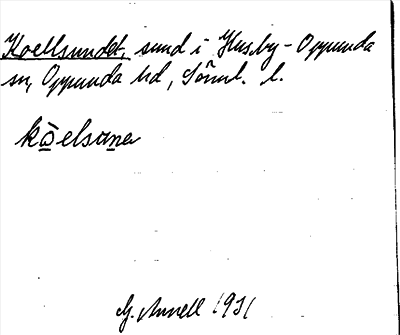 Koellsundet, sund i Husby-Oppunda
sn, Oppunda hd, Sörml. l.
kòelsuna
G. Annell 1931